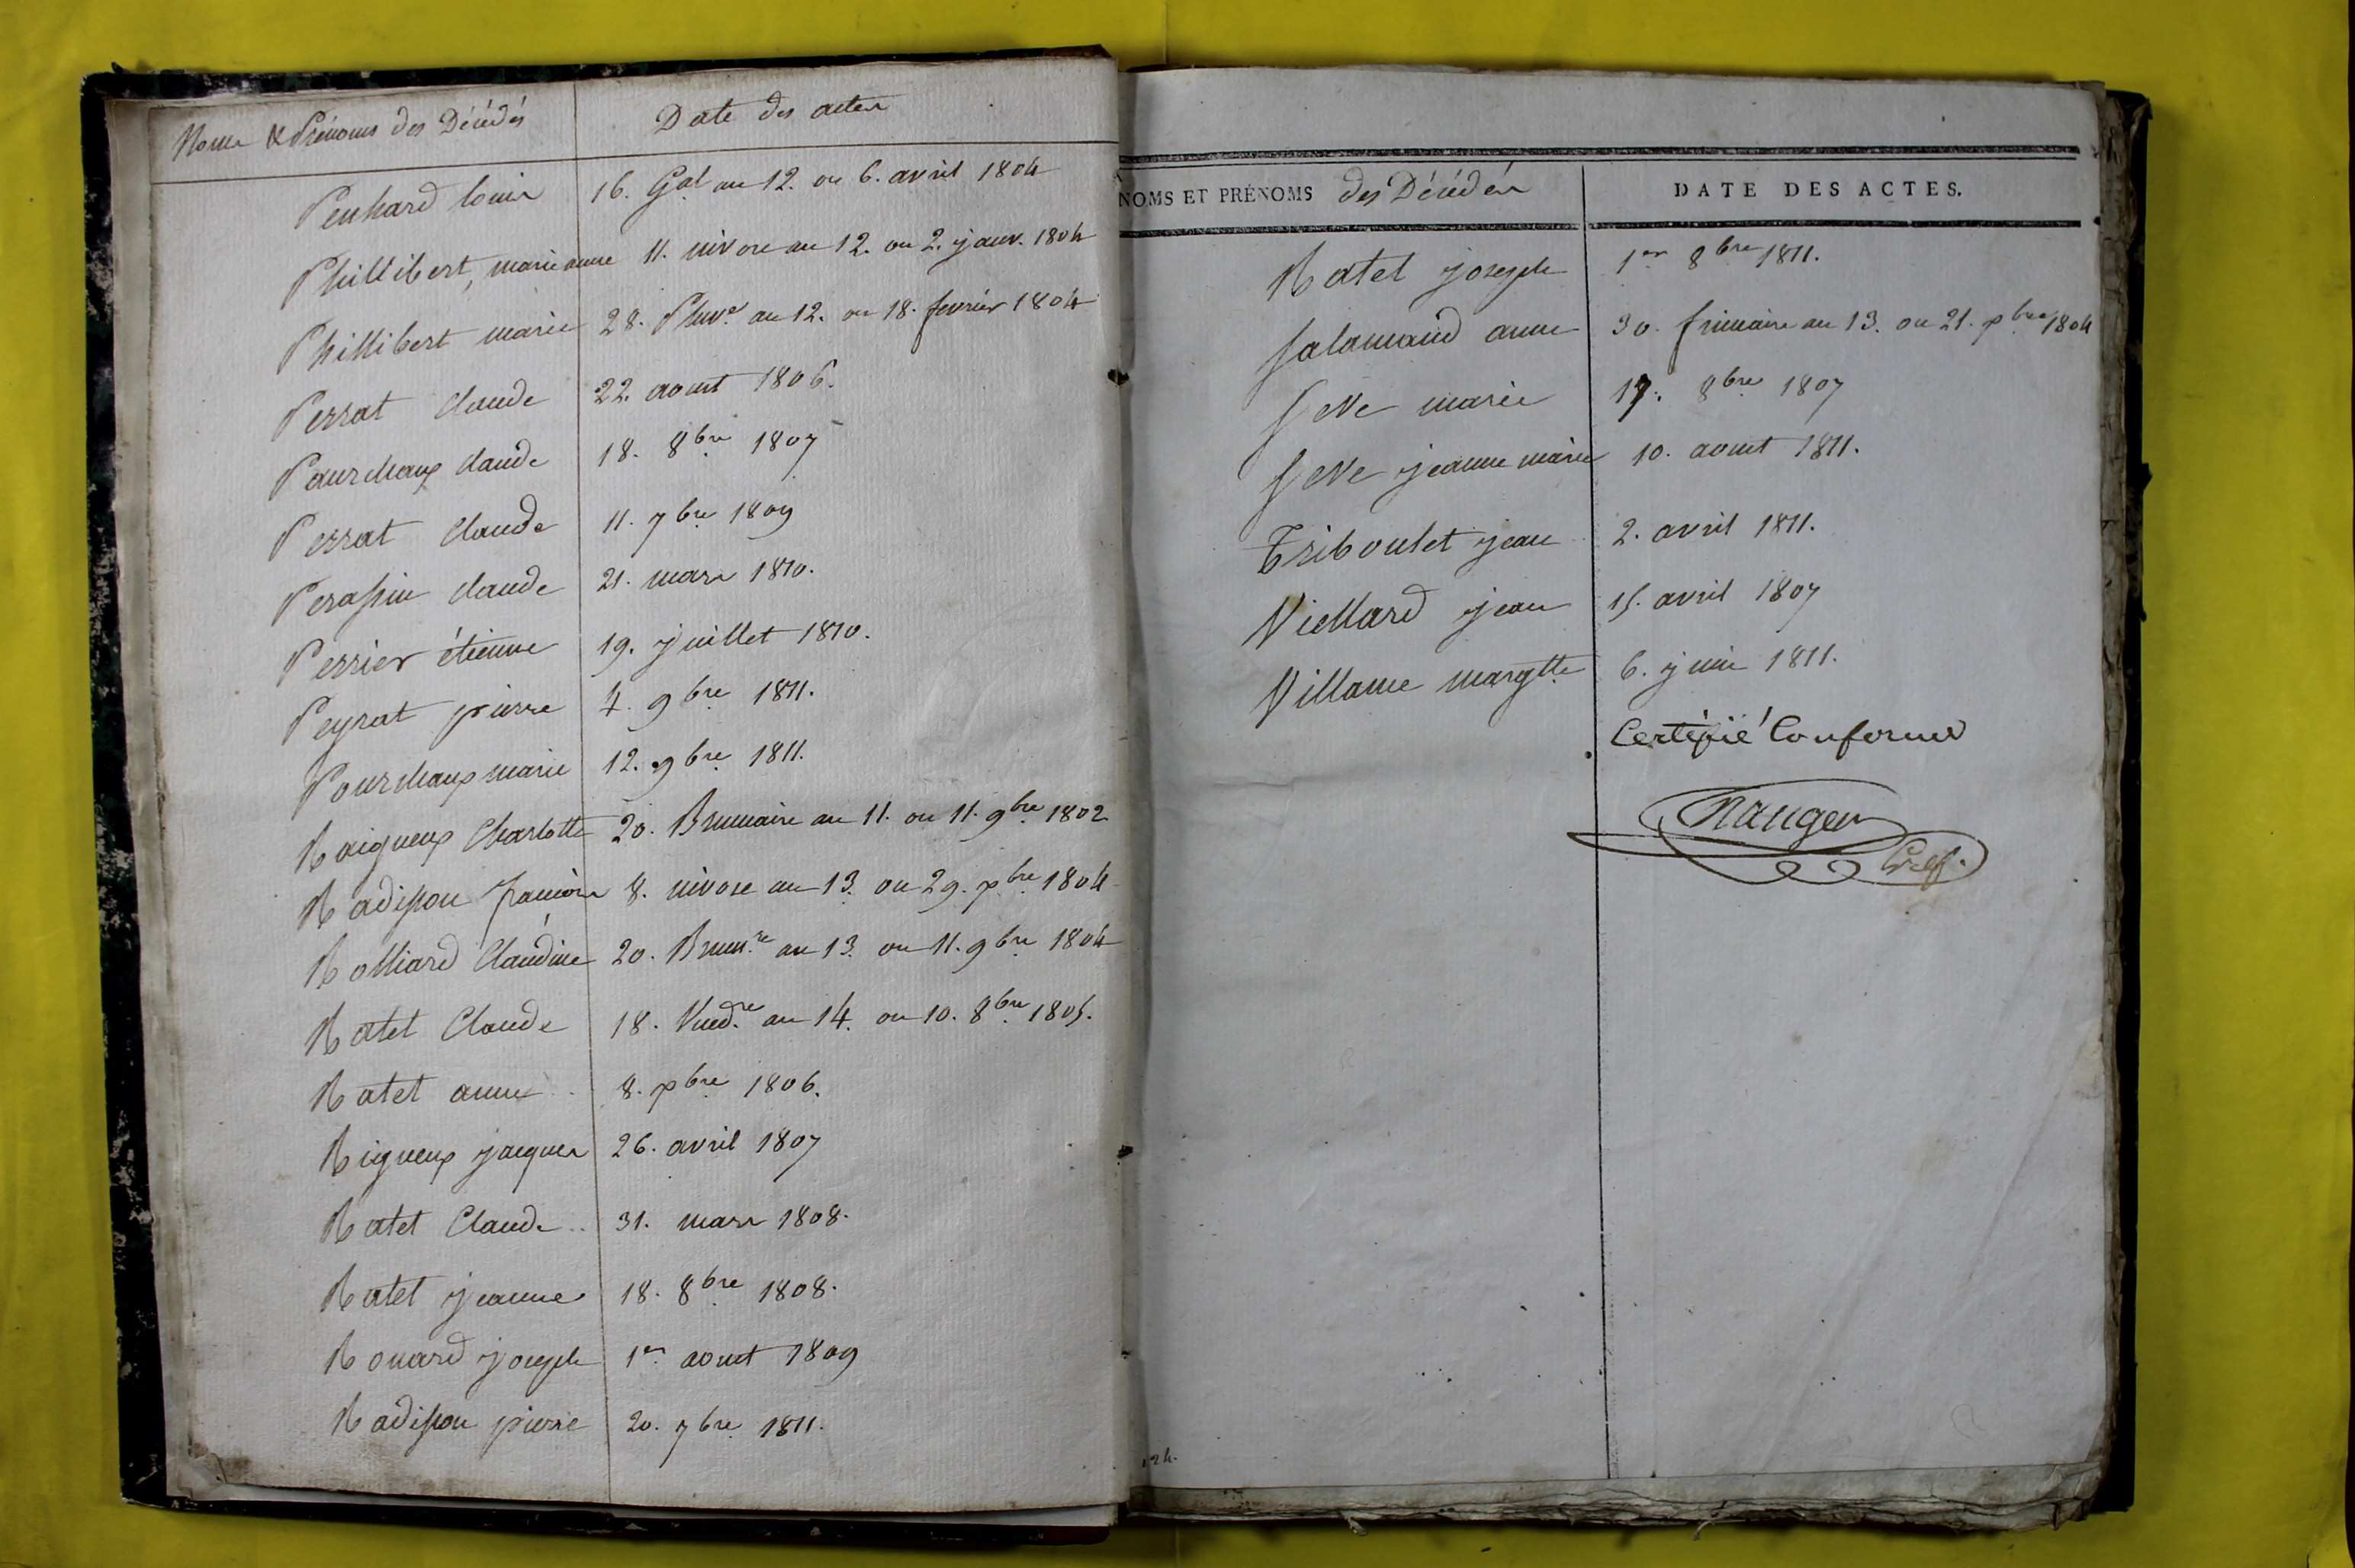 Noms & Prénoms des Décédés Date des actes
Penhard louis 16. Gal an 12. ou 6. avril 1804
Phillibert, marie anne 11. nivose an 12. ou 2. janv. 1804
Phillibert marie 28. Pluve an 12. ou 18. fevrier 1804
Perrat claude 22. aout 1806.
Pourchaux claude 18. 8bre 1807
Perrat claude 11. 7bre 1809
Perassin claude 21. mars 1810.
Perrier étienne 19. juillet 1810.
Peyrat pierre 4. 9bre 1811.
Pourchaux marie 12. 9bre 1811.
Raigneux Charlotte 20. Brumaire an 11. ou 11. 9bre 1802
Radisson françoise 8. nivose an 13. ou 29. xbre 1804
Rolliard Claudine 20. Brum.re an 13. ou 11. 9bre 1804
Ratet Claude 18. Vend.re an 14. ou 10. 8bre 1805.
Ratet anne 8. xbre 1806.
Rigneux jacques 26. avril 1807
Ratet Claude 31. mars 1808.
Ratet jeanne 18. 8bre 1808.
Rouard joseph 1er aout 1809
Radisson pierre 20. 7bre 1811.
NOMS ET PRÉNOMS des Décédés DATE DES ACTES.
Ratet joseph 1er 8bre 1811.
Salamand anne 30. frimaire an 13. ou 21. xbre 1804
Seve marie 17. 8bre 1807
Seve jeanne marie 10. aout 1811.
Triboulet jean 2. avril 1811.
Viellard jean 15. avril 1807
Villame margtte 6. juin 1811.
Certifié Conforme
Greff.